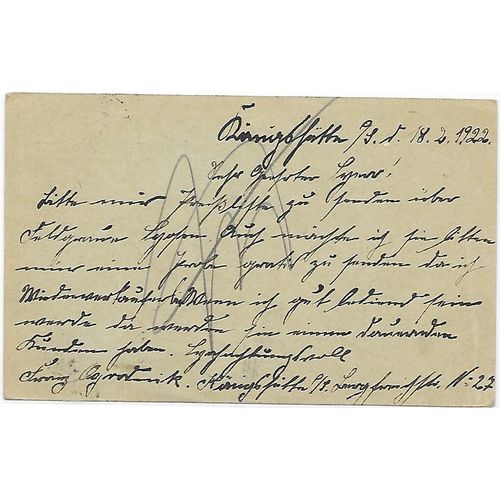 Königshütte O/S. d. 18.2.1922.
Sehr Geehrter Herr!
Bitte mir Preißliste zu senden über
Feldgraue Hosen Auch möchte ich sie bitten
mir eine Probe gratis zu senden da ich
Wiederverkäufer bin Wenn ich gut bedient sein
werde da werden sie einen dauernden
Kunden haben. Hochachtungsvoll
Franz Ogrodnik. Königshütte O/S. No 27